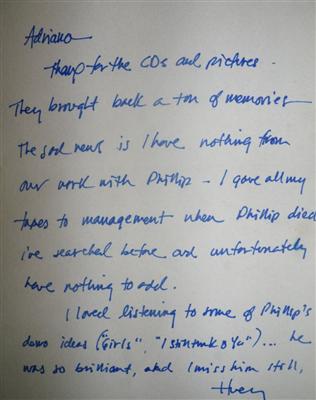 Adriano
thanx for the CDs and pictures.
They brought back a ton of memories
The sad news is I have nothing from
our work with Phillip - I gave all my
tapes to management when Phillip died
i've searched before and unfortunately
have nothing to add.
I loved listening to some of Phillip's
demo ideas ("Girls", "I still think o You")... he
was so brilliant, and I miss him still,